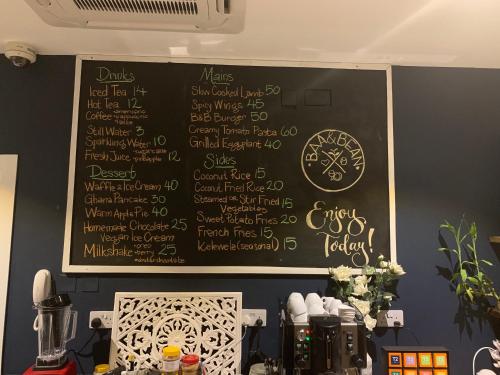 Drinks
Iced Tea 14
Hot Tea 12
Coffee
Still Water 3
Sparkling Water 10
Fresh Juice 12
Dessert
Waffle & Ice Cream 40
Ghana Pancake 30
Warm Apple Pie 40
Homemade Chocolate 25
Vegan Ice Cream
Milkshake 25
Mains
Slow Cooked Lamb 50
Spicy Wings 45
B&B Burger 50
Creamy Tomato Pasta 60
Grilled Eggplant 40
Sides
Coconut Rice 15
Coconut Fried Rice 20
Steamed or Stir Fried 15
Vegetables
Sweet Potato Fries 20
French Fries 15
Kelewele (seasonal) 15
BAA & BEAN
Enjoy
Today!